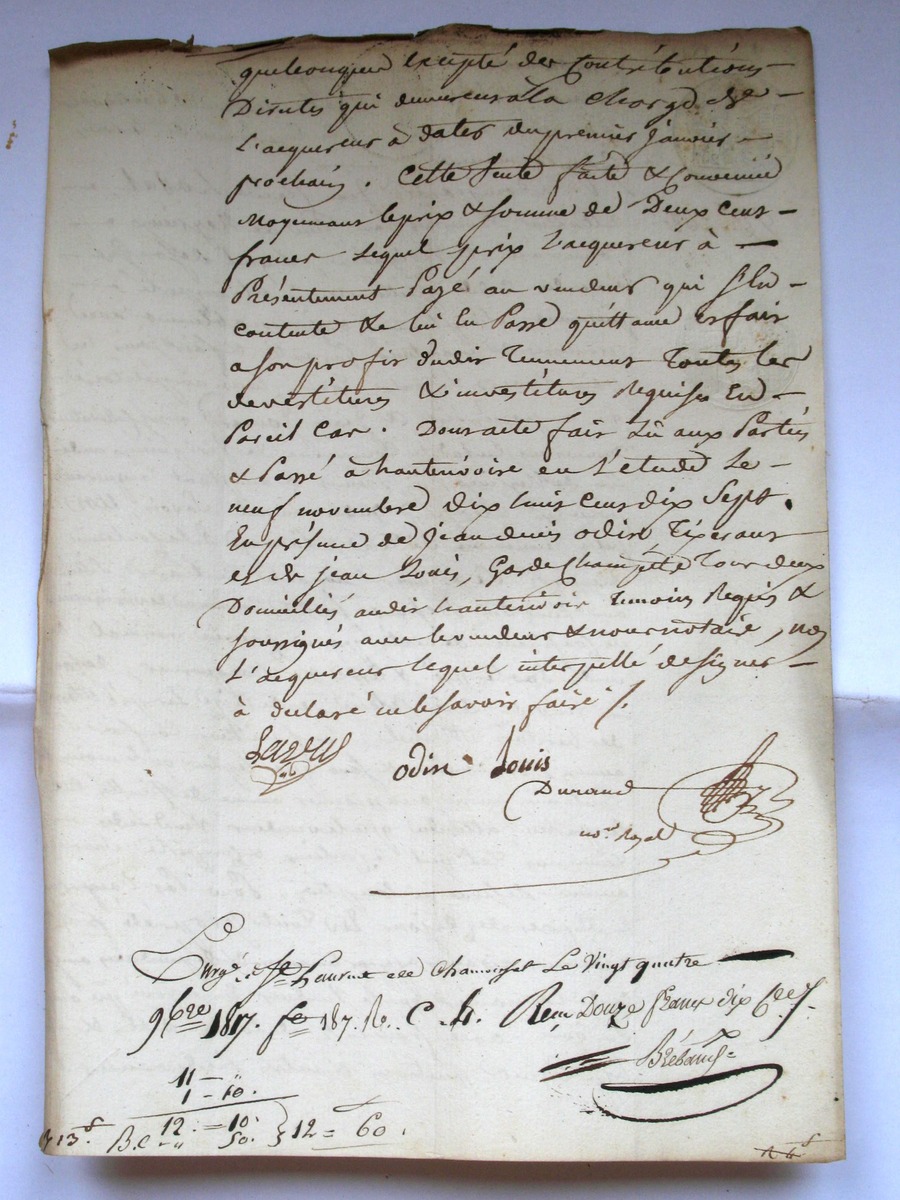 quelconques excepté des Contributions
Dirétes qui demeurent à la Charge de
L'acquereur à dater du premier Janvier
prochain. Cette Vente faite & Convenüe
Moyennant le prix & somme de Deux Cent
francs lequel prix l'acquereur à
Présentement Payé au vendeur qui s'En
contente & lui En Passe quittance et fait
a son profit dudit Tennement Toutes les
devestitures & investitures Requises En
Pareil Cas. Dont acte fait Lû aux Parties
& Passé à hauterivoire en L'étude Le
neuf novembre dix huit cent dix Sept.
En présence de Jean denis odin Tixerant
et de Jean Louis, Garde Champetre Tous deux
Domiciliés audit hauterivoir Temoins Requis &
soussignés avec le vendeur & nous notaire, non
L'acquereur lequel interpellé de signer
à declaré ne le savoir faire /.
odin Louis
Durand
no.re Royal
Enrgé. à St Laurent de Chamousset Le Vingt quatre
9bre 1817. fo 187. Ro. C. 4. Reçu Douze francs dix C.es
11 —
1 — 10.
12. = 10.
50. } 12 = 60.